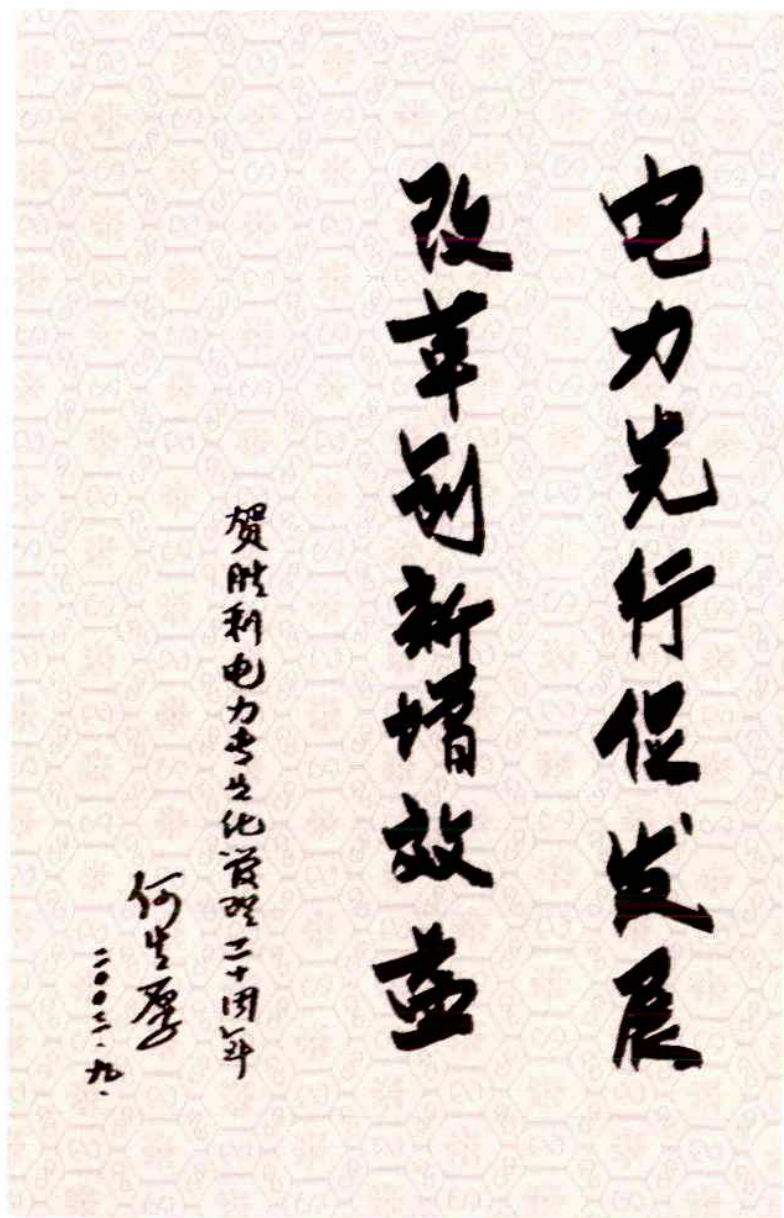 电力先行促发展
改革创新增效益
贺胜利电力专业化管理二十周年
何生厚
二〇〇三.九.